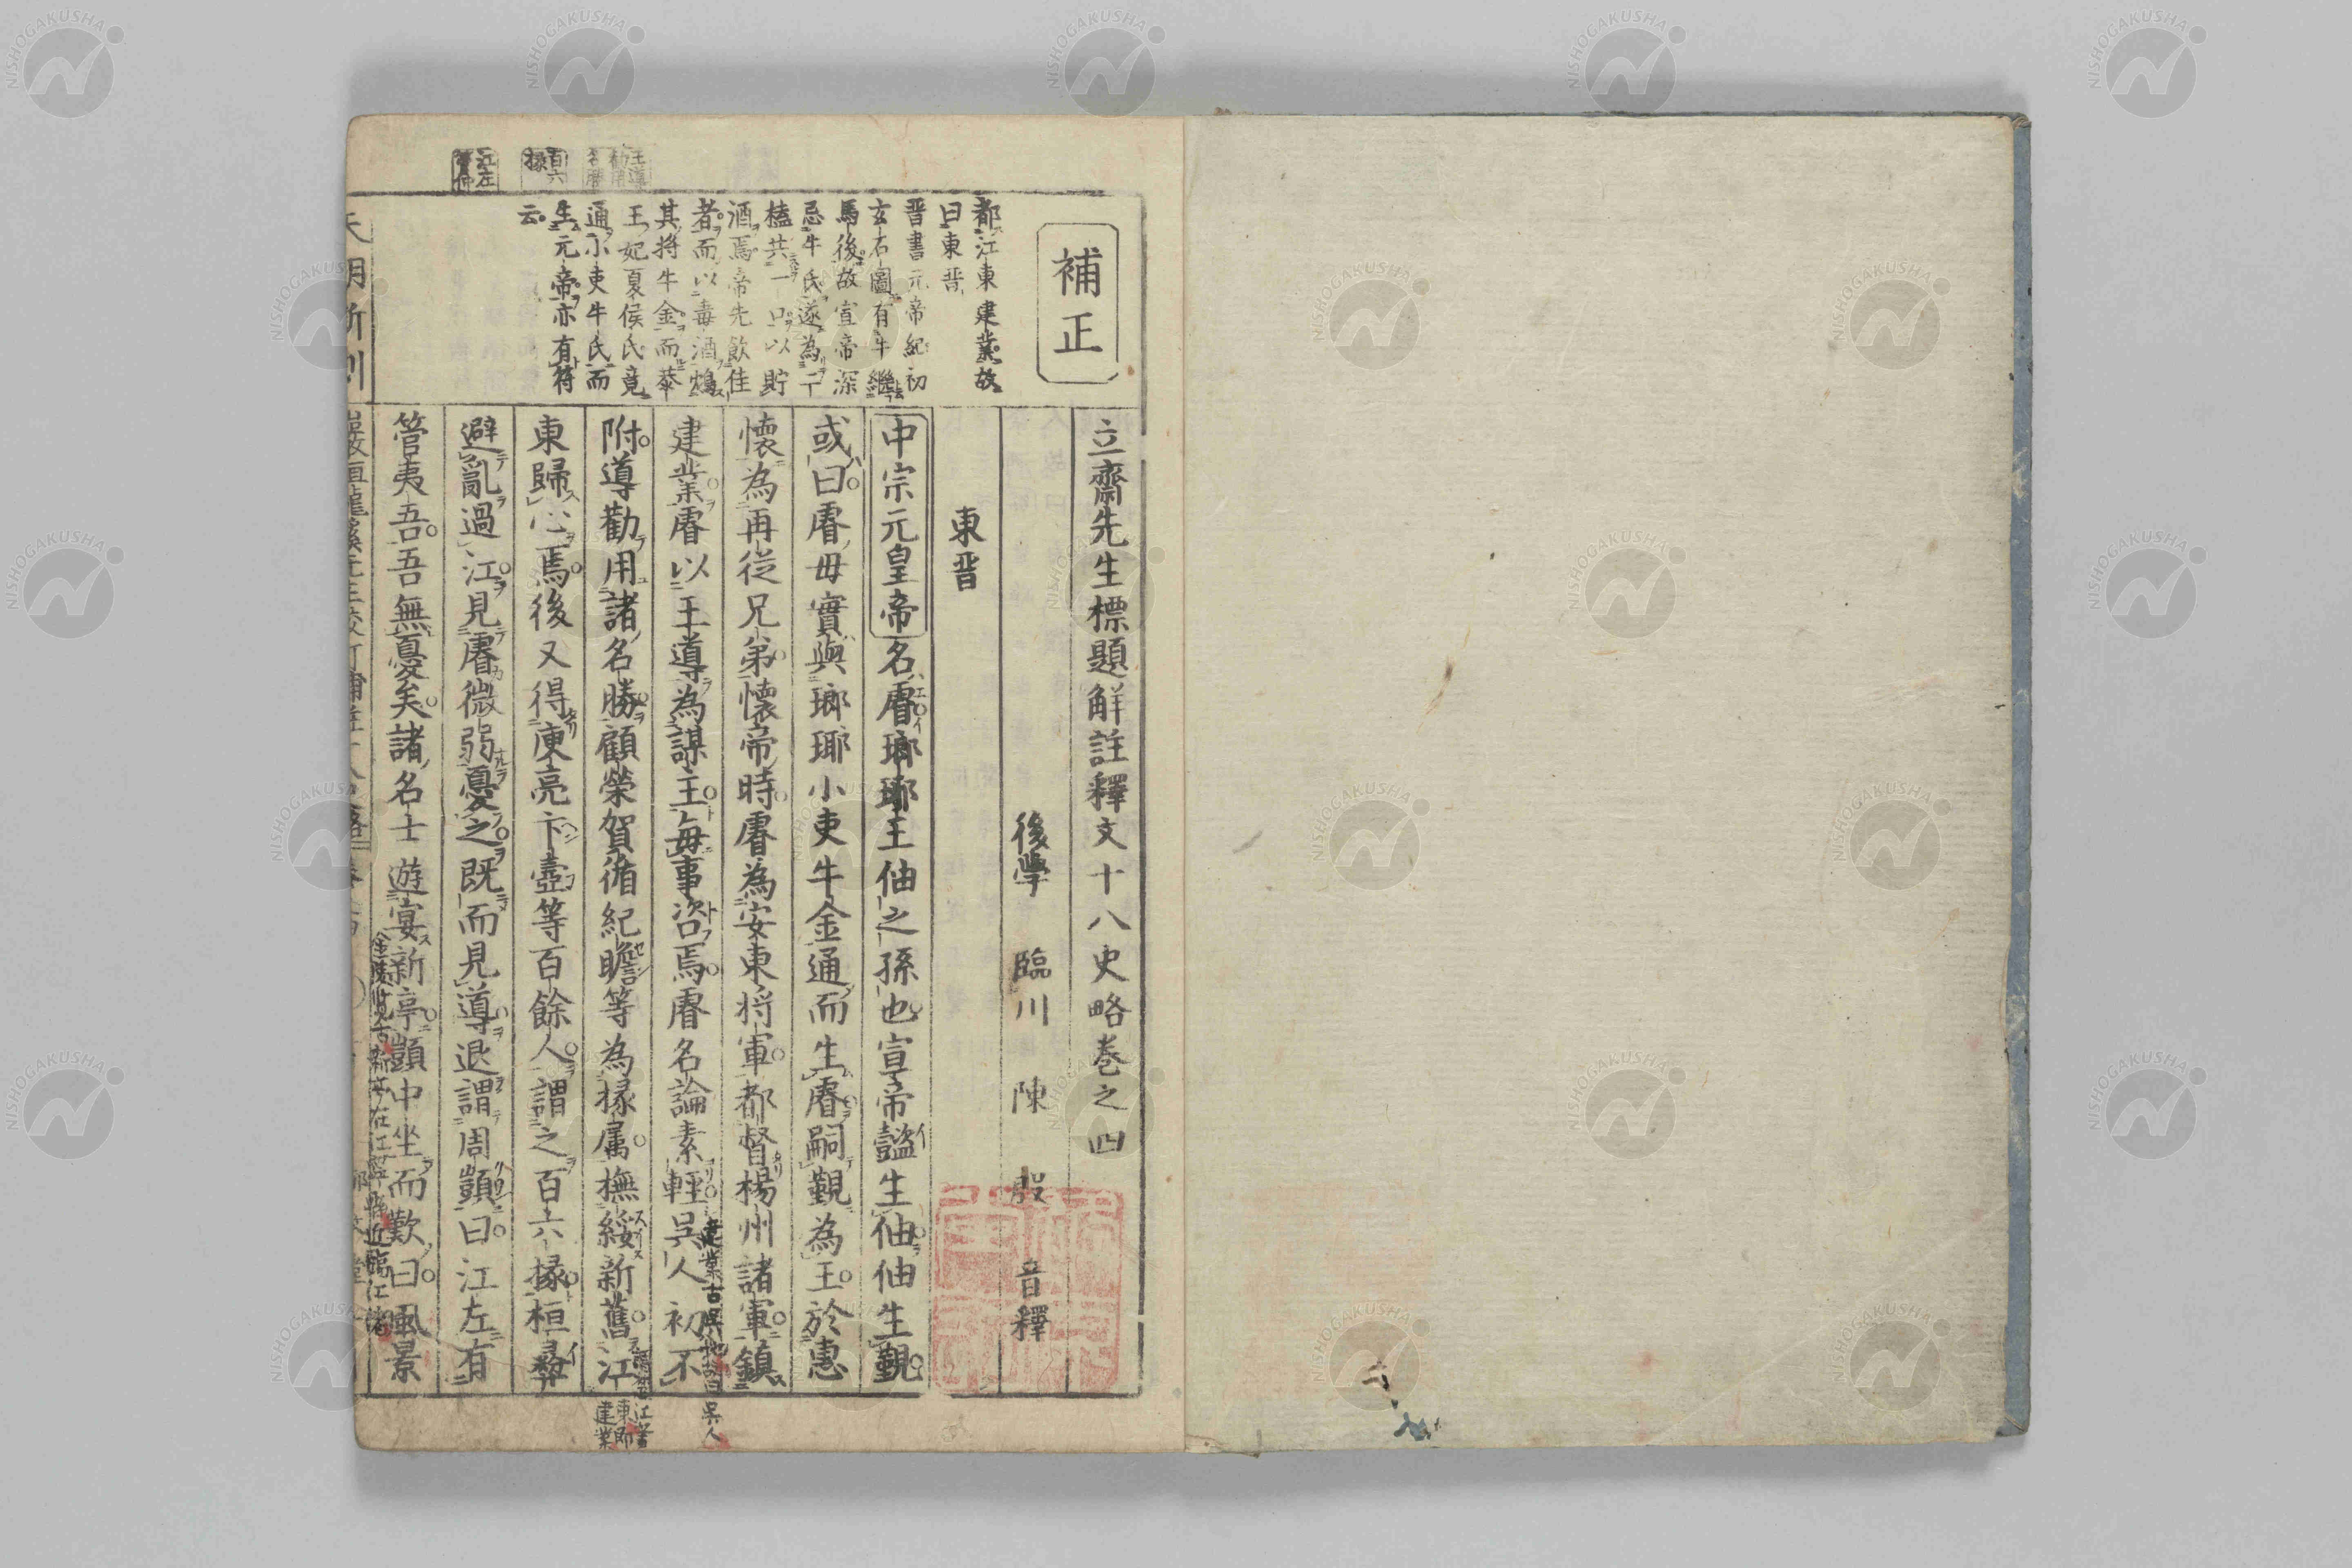 補正
都江東建業故
曰東晋
晋書元帝紀初
玄石圖有牛繼
馬後故宣帝深
忌牛氏遂為二
榼共一口以貯
酒焉帝先飲佳
者而以毒酒鴆
其将牛金而恭
王妃夏侯氏竟
通小吏牛氏而
生元帝亦有符
云
百六
掾
江左
立齋先生標題解註釋文十八史略巻之四
後學 臨川 陳 殷 音釋
東晋
中宗元皇帝名睿瑯琊王伷之孫也宣帝懿生伷伷生覲
或曰睿母實與瑯琊小吏牛金通而生睿嗣覲為王於惠
懐為再從兄弟懐帝時睿為安東将軍都督楊州諸軍鎮
建業睿以王導為謀主毎事咨焉睿名論素輕呉人初不
附導勸用諸名勝顧榮賀循紀瞻等為掾属撫綏新舊江
東歸心焉後又得庾亮卞壼等百餘人謂之百六掾桓彝
避亂過江見睿微弱憂之既而見導退謂周顗曰江左有
管夷吾吾無憂矣諸名士遊宴新亭顗中坐而歎曰風景
建業古呉地故曰呉人
東即
建業
新亭在江寧縣近臨江渚
NISHOGAKUSHA